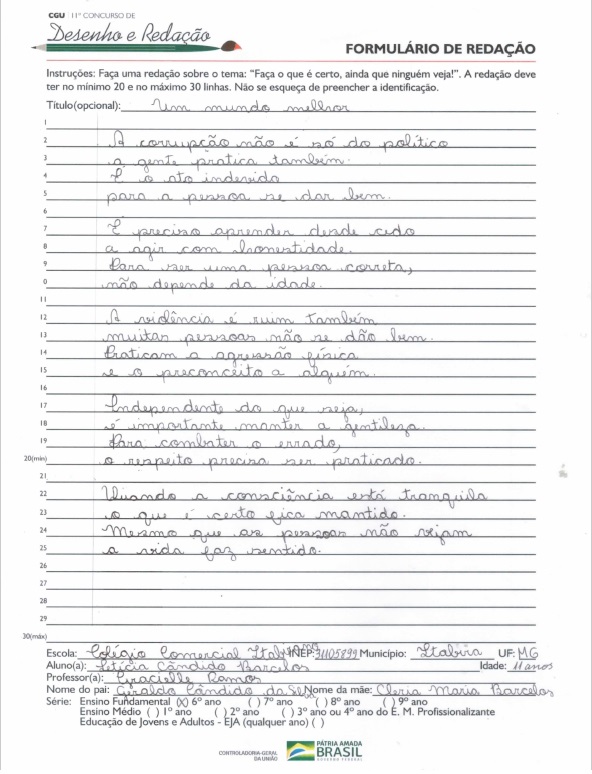 CGU 11º CONCURSO DE
Desenho e Redação
FORMULÁRIO DE REDAÇÃO
Instruções: Faça uma redação sobre o tema: "Faça o que é certo, ainda que ninguém veja!". A redação deve
ter no mínimo 20 e no máximo 30 linhas. Não se esqueça de preencher a identificação.
Título(opcional): Um mundo melhor
1
2 A corrupção não é só do político
3 a gente pratica também.
4 É o ato indevido
5 para a pessoa se dar bem.
6
7 É preciso aprender desde cedo
8 a agir com honestidade.
9 Para ser uma pessoa correta,
0 não depende da idade.
11
12 A violência é ruim também
13 muitas pessoas não se dão bem.
14 Praticam a agressão física
15 e o preconceito a alguém.
16
17 Independente do que seja,
18 é importante manter a gentileza.
19 Para combater o errado,
20(mín) o respeito precisa ser praticado.
21
22 Quando a consciência está tranquila
23 o que é certo fica mantido.
24 Mesmo que as pessoas não vejam
25 a vida faz sentido.
26
27
28
29
30(máx)
Escola: Colégio Comercial INEP: 31105899 Município: Itabira UF: MG
Aluno(a): Letícia Cândido Barcelos Idade: 11 anos
Professor(a): Gracielle Ramos
Nome do pai: Geraldo Cândido da Nome da mãe: Cleria Maria Barcelos
Série: Ensino Fundamental (X) 6º ano ( ) 7º ano ( ) 8º ano ( ) 9º ano
Ensino Médio ( ) 1º ano ( ) 2º ano ( ) 3º ano ou 4º ano do E. M. Profissionalizante
Educação de Jovens e Adultos - EJA (qualquer ano) ( )
CONTROLADORIA-GERAL
DA UNIÃO
PÁTRIA AMADA
BRASIL
GOVERNO FEDERAL